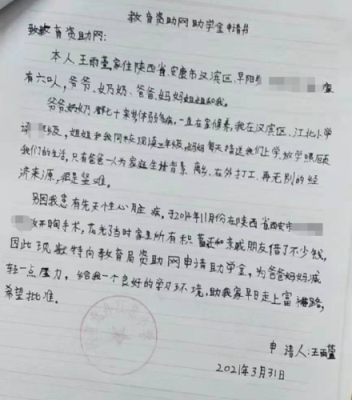 教育资助网助学金申请书
致教育资助网:
本人王雨萱家住陕西省安康市汉滨区,早阳
有六口人,爷爷、奶奶、爸爸、妈妈姐姐和我。
爷爷奶奶都七十来岁体弱多病,一直在家候养,我在汉滨区、江北小学
读 级,姐姐和我同校现读 年级,妈妈每天接送我们上学、放学照顾
我们的生活,只有爸爸一人为家庭生活 ,在外打工、再无别的经
济来源,很是坚难。
另因我患有先天性心脏病,于2014年11月份在陕西省西安市
做开胸手术,花光当时家里所有积蓄还和亲戚朋友借了不少钱,
因此现 特向教育局资助网申请助学金,为爸爸妈妈减
轻一点压力,给我一个良好的学习环境,助我家早日走上富裕路,
希望批准。
申请人:王雨萱
2021年3月31日